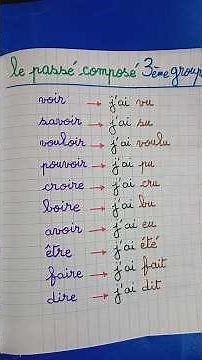 le passé composé 3ème group
voir → j'ai vu
savoir → j'ai su
vouloir → j'ai voulu
pouvoir → j'ai pu
croire → j'ai cru
boire → j'ai bu
avoir → j'ai eu
être → j'ai été
faire → j'ai fait
dire → j'ai dit